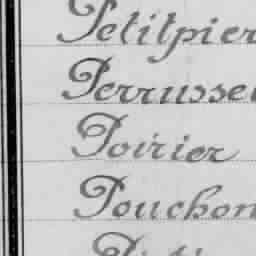 Petitpier
Perrusse
Poirier
Pouchon